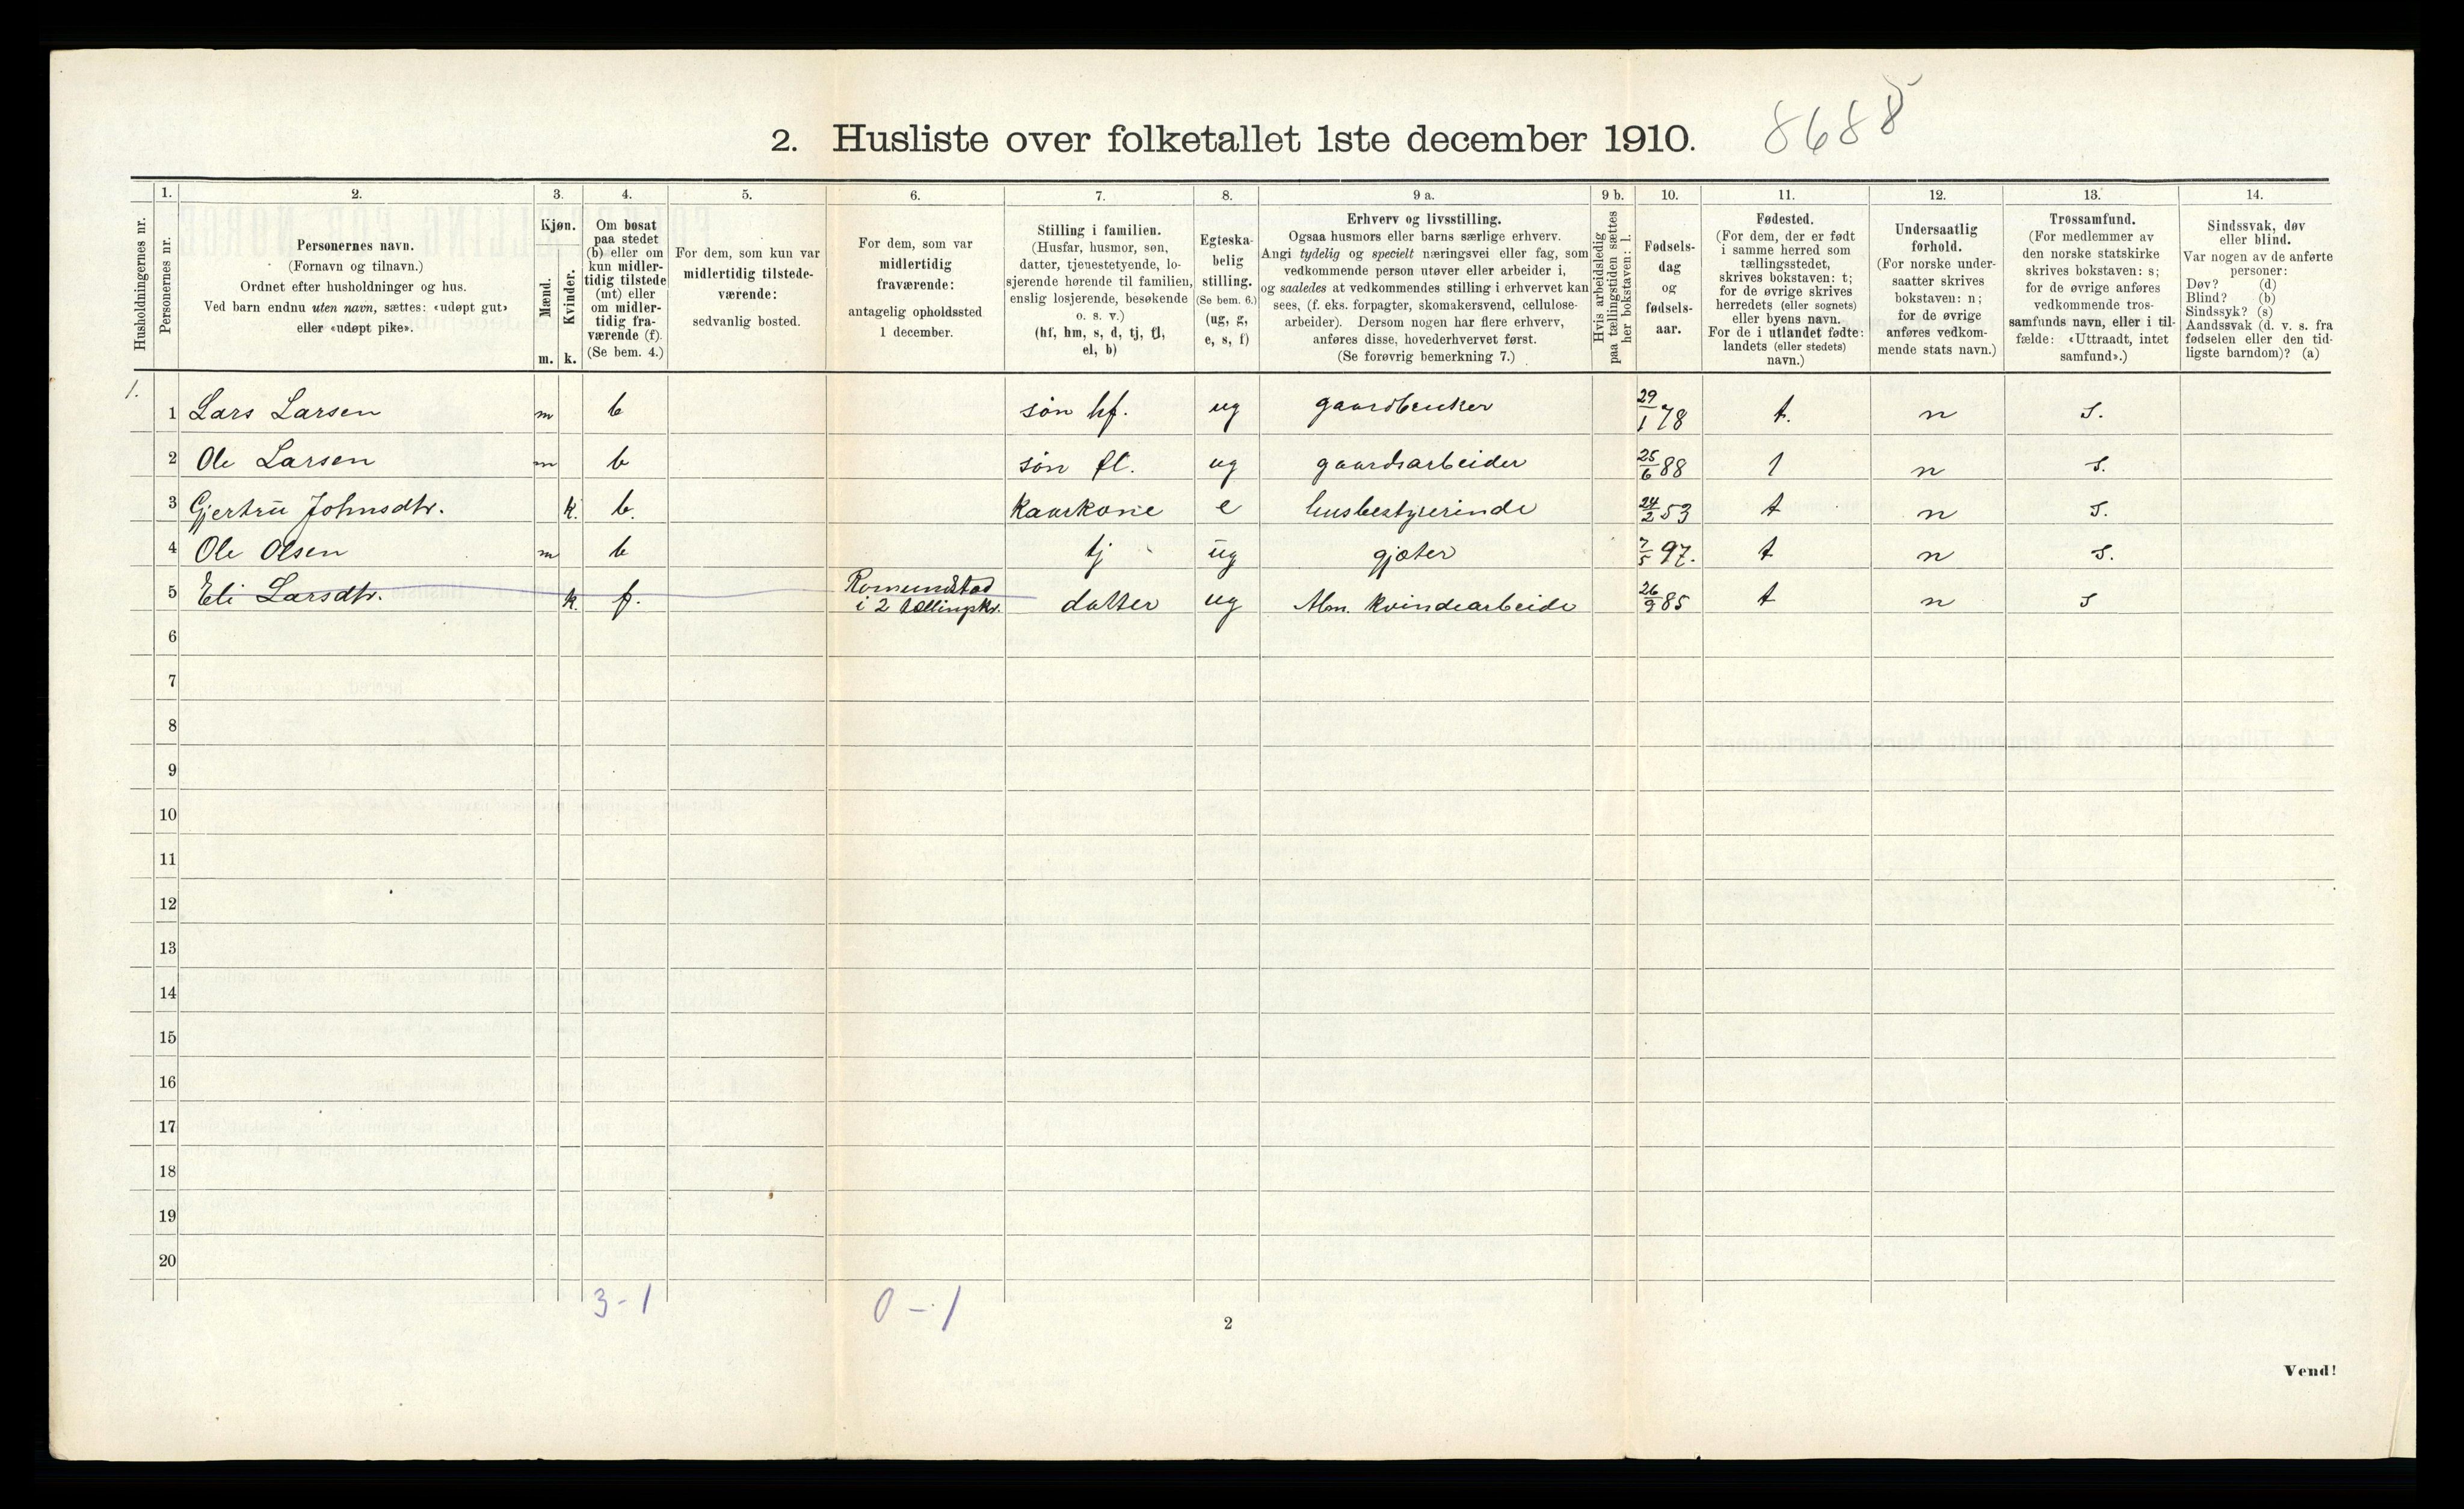 2. Husliste over folketallet 1ste december 1910. 8688
Husholdningernes nr.
1. Personernes nr.
2. Personernes navn.
(Fornavn og tilnavn.)
Ordnet efter husholdninger og hus.
Ved barn endnu uten navn, sættes: «udøpt gut»
eller «udøpt pike».
3. Kjøn.
Mænd. Kvinder.
m. k.
4. Om bosat
paa stedet
(b) eller om
kun midler-
tidig tilstede
(mt) eller
om midler-
tidig fra-
værende (f).
(Se bem. 4.)
5. For dem, som kun var
midlertidig tilstede-
værende:
sedvanlig bosted.
6. For dem, som var
midlertidig
fraværende:
antagelig opholdssted
1 december.
7. Stilling i familien.
(Husfar, husmor, søn,
datter, tjenestetyende, lo-
sjerende hørende til familien,
enslig losjerende, besøkende
o. s. v.)
(hf, hm, s, d, tj, fl,
el, b)
8. Egteska-
belig
stilling.
(Se bem. 6.)
(ug, g,
e, s, f)
9 a. Erhverv og livsstilling.
Ogsaa husmors eller barns særlige erhverv.
Angi tydelig og specielt næringsvei eller fag, som
vedkommende person utøver eller arbeider i,
og saaledes at vedkommendes stilling i erhvervet kan
sees, (f. eks. forpagter, skomakersvend, cellulose-
arbeider). Dersom nogen har flere erhverv,
anføres disse, hovederhvervet først.
(Se forøvrig bemerkning 7.)
9 b. Hvis arbeidsledig
paa tællingstiden sættes
her bokstaven: l.
10. Fødsels-
dag
og
fødsels-
aar.
11. Fødested.
(For dem, der er født
i samme herred som
tællingsstedet,
skrives bokstaven: t;
for de øvrige skrives
herredets (eller sognets)
eller byens navn.
For de i utlandet fødte:
landets (eller stedets)
navn.)
12. Undersaatlig
forhold.
(For norske under-
saatter skrives
bokstaven: n;
for de øvrige
anføres vedkom-
mende stats navn.)
13. Trossamfund.
(For medlemmer av
den norske statskirke
skrives bokstaven: s;
for de øvrige anføres
vedkommende tros-
samfunds navn, eller i til-
fælde: «Uttraadt, intet
samfund».)
14. Sindssvak, døv
eller blind.
Var nogen av de anførte
personer:
Døv? (d)
Blind? (b)
Sindssyk? (s)
Aandssvak (d. v. s. fra
fødselen eller den tid-
ligste barndom)? (a)
1. 1 Lars Larsen m b søn hf. ug gaardbruker 29/1 78 t. n s.
2 Ole Larsen m b søn fl. ug gaardsarbeider 25/6 88 t n s.
3 Gjertru Johnsdtr. k. b. Kaarkone e husbestyrerinde 24/2 53 t n s.
4 Ole Olsen m b tj ug gjæter 7/5 97. t n s.
5 Eli Larsdtr. k. f. Romundstad
i 2 tællingskr. datter ug Alm. kvindearbeide 26/9 85 t n s
6
7
8
9
10
11
12
13
14
15
16
17
18
19
20
3-1 0-1
2
Vend!